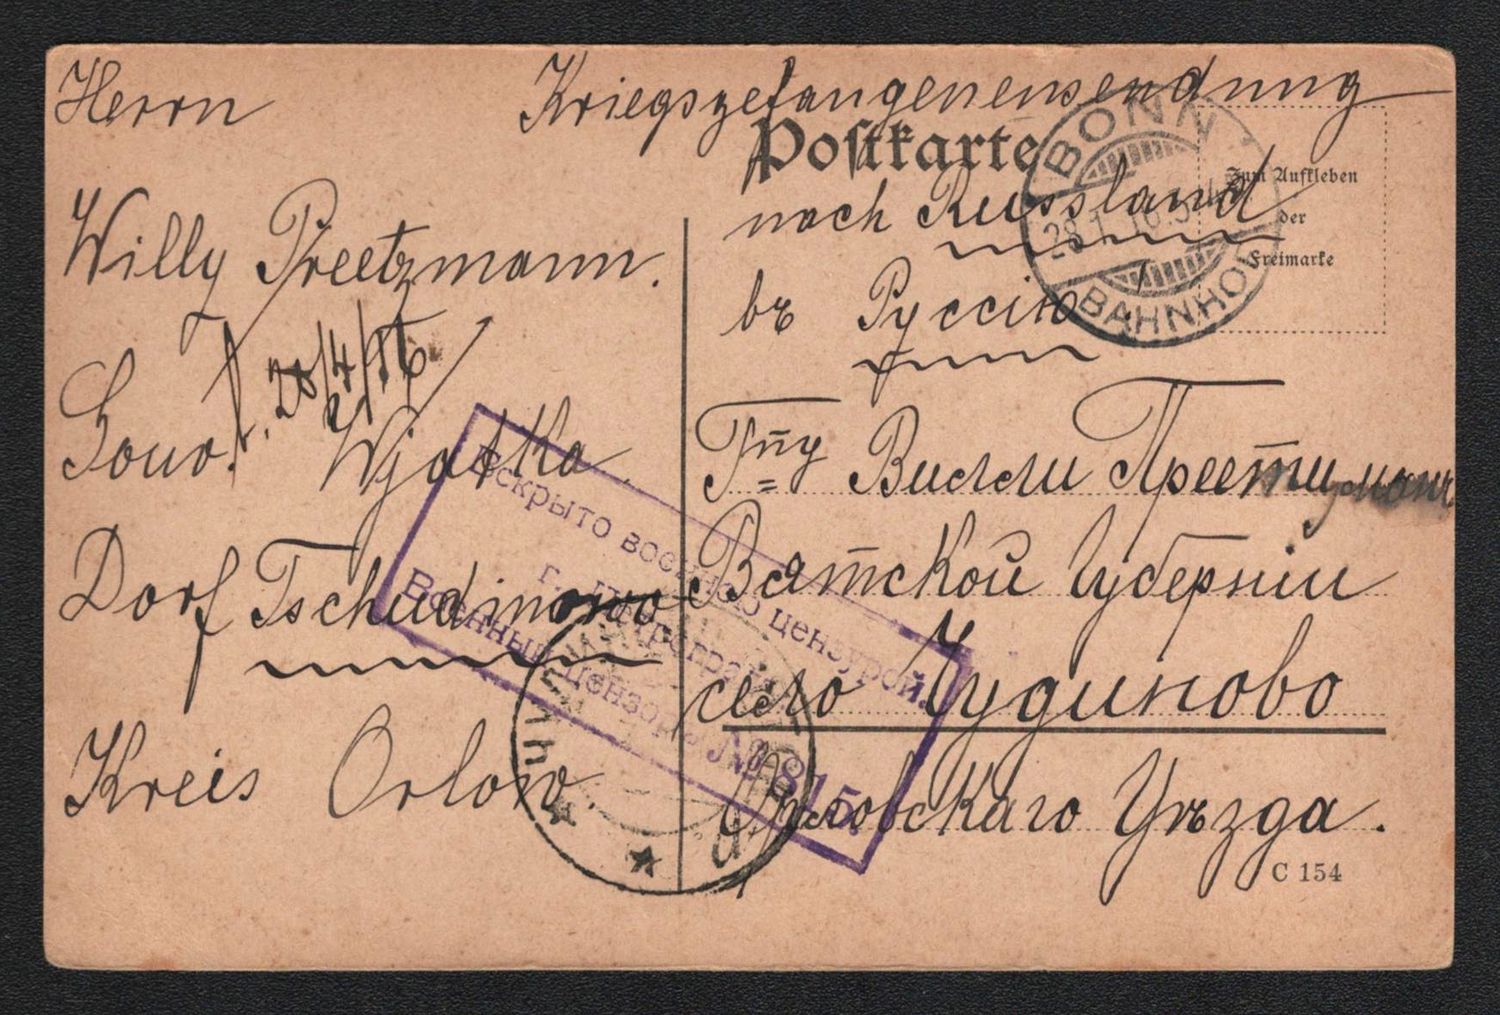 Herrn
Willy Preetzmann.
28/4/16
Gouv. Wjatka
Dorf Tschudinowo
Kreis Orlow.
Kriegsgefangenensendung
Postkarte
nach Russland
въ Руссію
Гпу Вилли Преетцманъ
Вятской губерніи
село Чудиново
Орловскаго Уѣзда.
BONN
28.1.16.
BAHNHOF
Zum Aufkleben
der
Freimarke
Вскрыто военною цензурой.
г. Петроград
Военный цензоръ № 815.
C 154